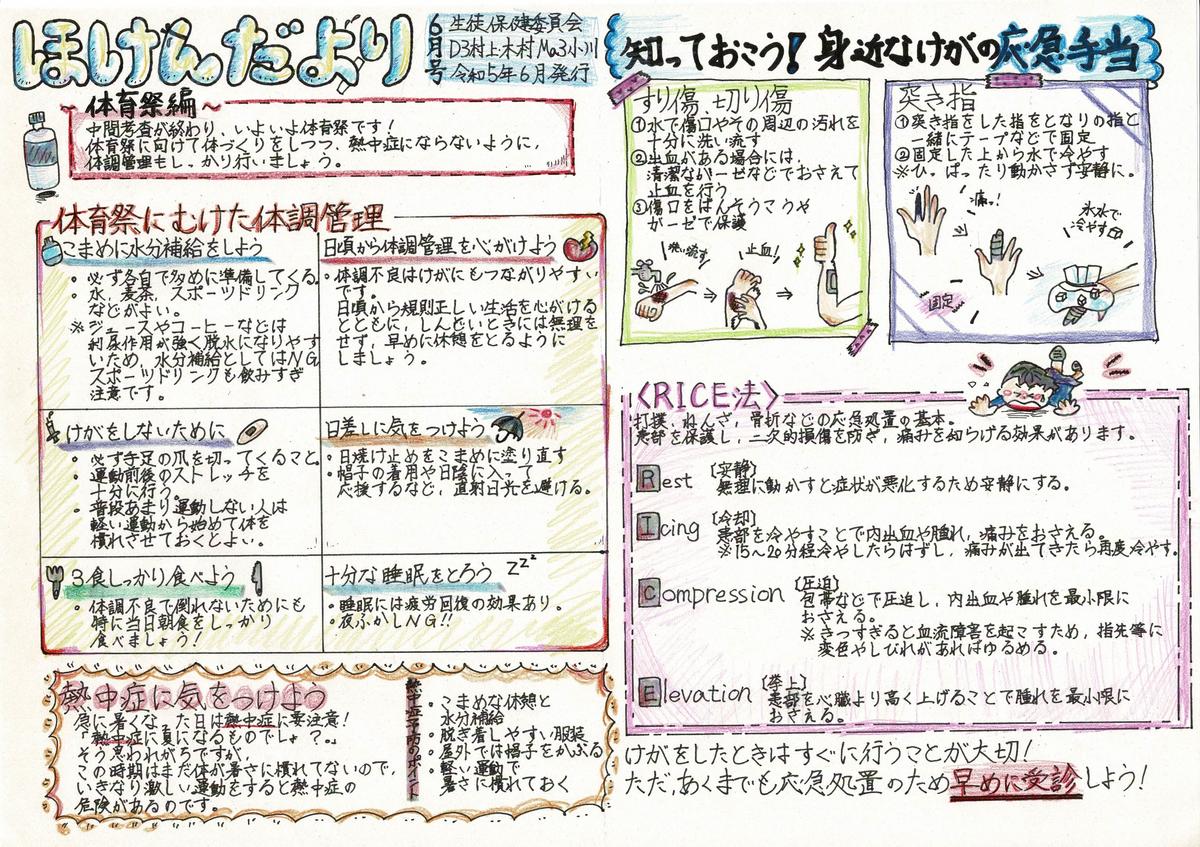 ほけんだより
6月号
生徒保健委員会
D3村上木村Ma3小川
令和5年6月発行
～体育祭編～
中間考査が終わり、いよいよ体育祭です！
体育祭に向けて体づくりをしつつ、熱中症にならないように、
体調管理もしっかり行いましょう。
体育祭にむけた体調管理
こまめに水分補給をしよう
・必ず各自で多めに準備してくる。
・水、麦茶、スポーツドリンク
などがよい。
※ジュースやコーヒーなどは
利尿作用が強く脱水になりやす
いため、水分補給としてはNG
スポーツドリンクも飲みすぎ
注意です。
日頃から体調管理を心がけよう
・体調不良はけがにもつながりやすい
です。
日頃から規則正しい生活を心がける
とともに、しんどいときには無理を
せず、早めに休憩をとるように
しましょう。
けがをしないために
・必ず手足の爪を切ってくること。
・運動前後のストレッチを
十分に行う。
・普段あまり運動しない人は
軽い運動から始めて体を
慣れさせておくとよい。
日差しに気をつけよう
・日焼け止めをこまめに塗り直す
・帽子の着用や日陰に入って
応援するなど、直射日光を避ける。
3食しっかり食べよう
・体調不良で倒れないためにも
特に当日朝食をしっかり
食べましょう！
十分な睡眠をとろう
zzz
・睡眠には疲労回復の効果あり。
・夜ふかしNG!!
熱中症に気をつけよう
急に暑くなった日は熱中症に要注意！
「熱中症に真になるものでしょ？。」
そう思われがちですが、
この時期はまだ体が暑さに慣れてないので、
いきなり激しい運動をすると熱中症の
危険があるのです。
熱中症予防のポイント
・こまめな休憩と
水分補給
・脱ぎ着しやすい服装
・屋外では帽子をかぶる
・軽い運動で
暑さに慣れておく
知っておこう！身近なけがの応急手当
すり傷、切り傷
①水で傷口やその周辺の汚れを
十分に洗い流す
②出血がある場合には、
清潔なガーゼなどでおさえて
止血を行う
③傷口をばんそうこうや
ガーゼで保護
洗い流す
止血！
突き指
①突き指をした指をとなりの指と
一緒にテープなどで固定
②固定した上から水で冷やす
※ひっぱったり動かさず安静に。
痛っ！
固定
氷水で
冷やす
〈RICE法〉
打撲、ねんざ、骨折などの応急処置の基本。
患部を保護し、二次的損傷を防ぎ、痛みを和らげる効果があります。
Rest［安静］
無理に動かすと症状が悪化するため安静にする。
Icing［冷却］
患部を冷やすことで内出血や腫れ、痛みをおさえる。
※15～20分程冷やしたらはずし、痛みが出てきたら再度冷やす。
Compression［圧迫］
包帯などで圧迫し、内出血や腫れを最小限に
おさえる。
※きつすぎると血流障害を起こすため、指先等に
変色やしびれがあればゆるめる。
Elevation［挙上］
患部を心臓より高く上げることで腫れを最小限に
おさえる。
けがをしたときはすぐに行うことが大切！
ただ、あくまでも応急処置のため早めに受診しよう！